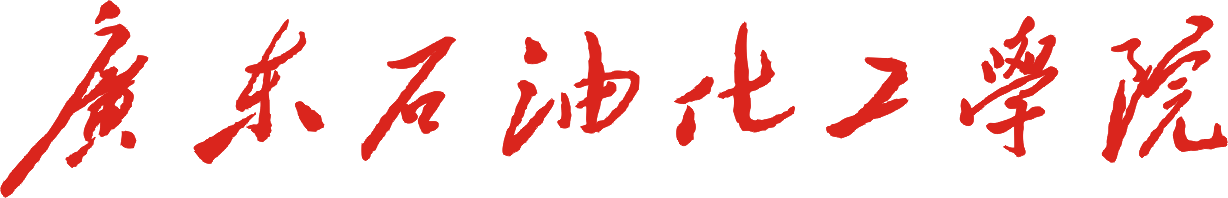 廣东石油化工學院